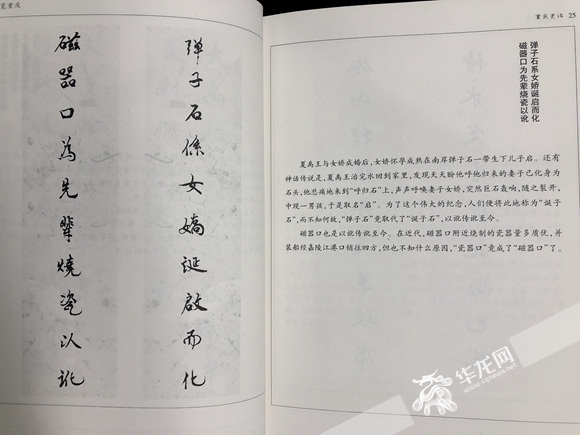 见重庆
弹子石係女嬌诞啟而化
磁器口為先輩燒瓷以訛
重庆史话 25
弹子石系女娇诞启而化
磁器口为先辈烧瓷以讹
夏禹王与女娇成婚后,女娇怀孕成熟在南岸弹子石一带生下儿子启。还有
神话传说是,夏禹王治完水回到家里,发现天天盼他呼他归来的妻子已化身为
石头,他悲痛地来到“呼归石”上,声声呼唤妻子女娇,突然巨石轰响,随之裂开,
中现一男孩,于是取名“启”。为了这个伟大的纪念,人们便将此地称为“诞子
石”,而不知何故,“弹子石”竟取代了“诞子石”,以讹传讹至今。
磁器口也是以讹传讹至今。在近代,磁器口附近烧制的瓷器量多质优,并
装船经嘉陵江港口销往四方,但也不知什么原因,“瓷器口”竟成了“磁器口”了。
华龙网
www.cqnews.net